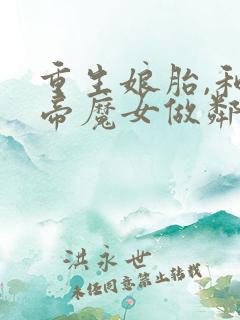 重生娘胎,和
帝魔女做鄰
洪永世
未经同意禁止转载